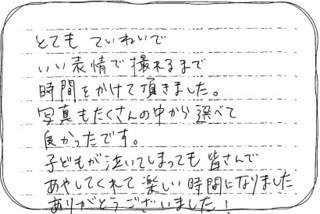 とても ていねいで
いい表情で撮れるまで
時間をかけて頂きました。
写真もたくさんの中から選べて
良かったです。
子どもが泣いてしまっても 皆さんで
あやしてくれて楽しい時間になりました
ありがとうございました！